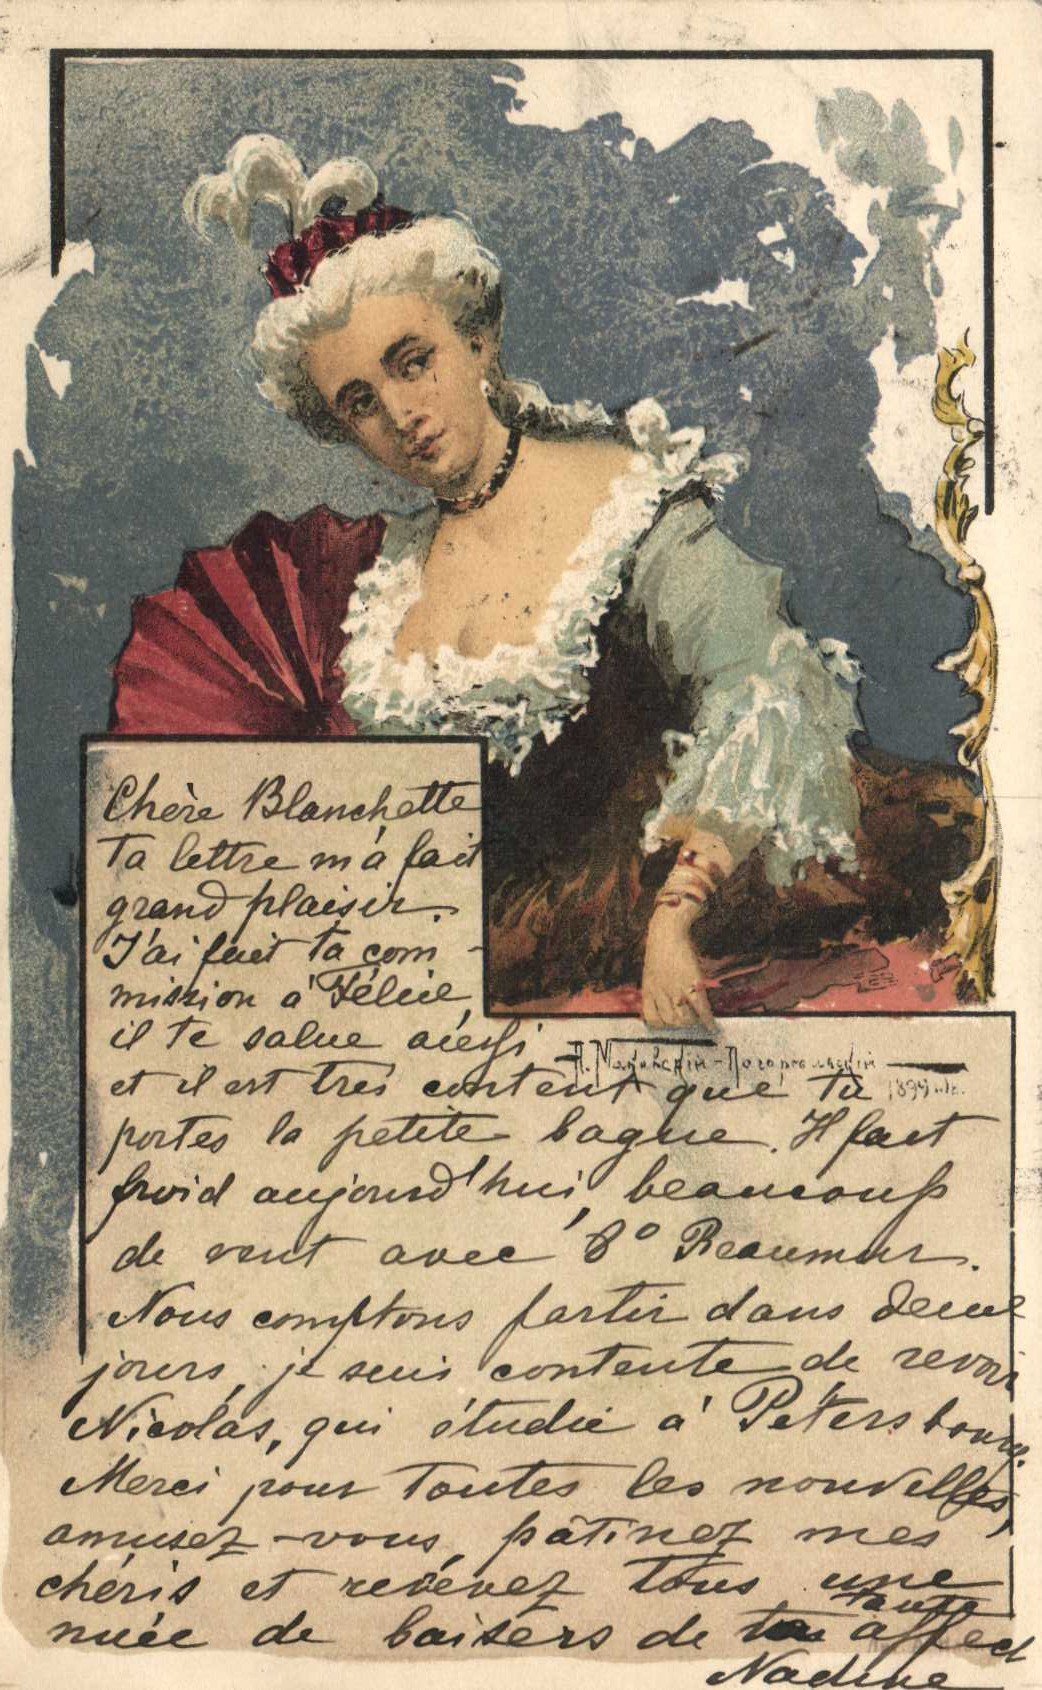 Chère Blanchette
Ta lettre m'a fait
grand plaisir.
J'ai fait ta com-
mission à Félicie,
il te salue aussi,
et il est très content que tu
portes la petite bague. Il fait
froid aujourd'hui, beaucoup
de vent avec 8° Reaumur.
Nous comptons partir dans deux
jours, je suis contente de revoir
Nicolas, qui étudie à Pétersbourg.
Merci pour toutes les nouvelles,
amusez-vous, patinez mes
chéris et recevez tous une
nuée de baisers de ta tante affect
Nadine
1899